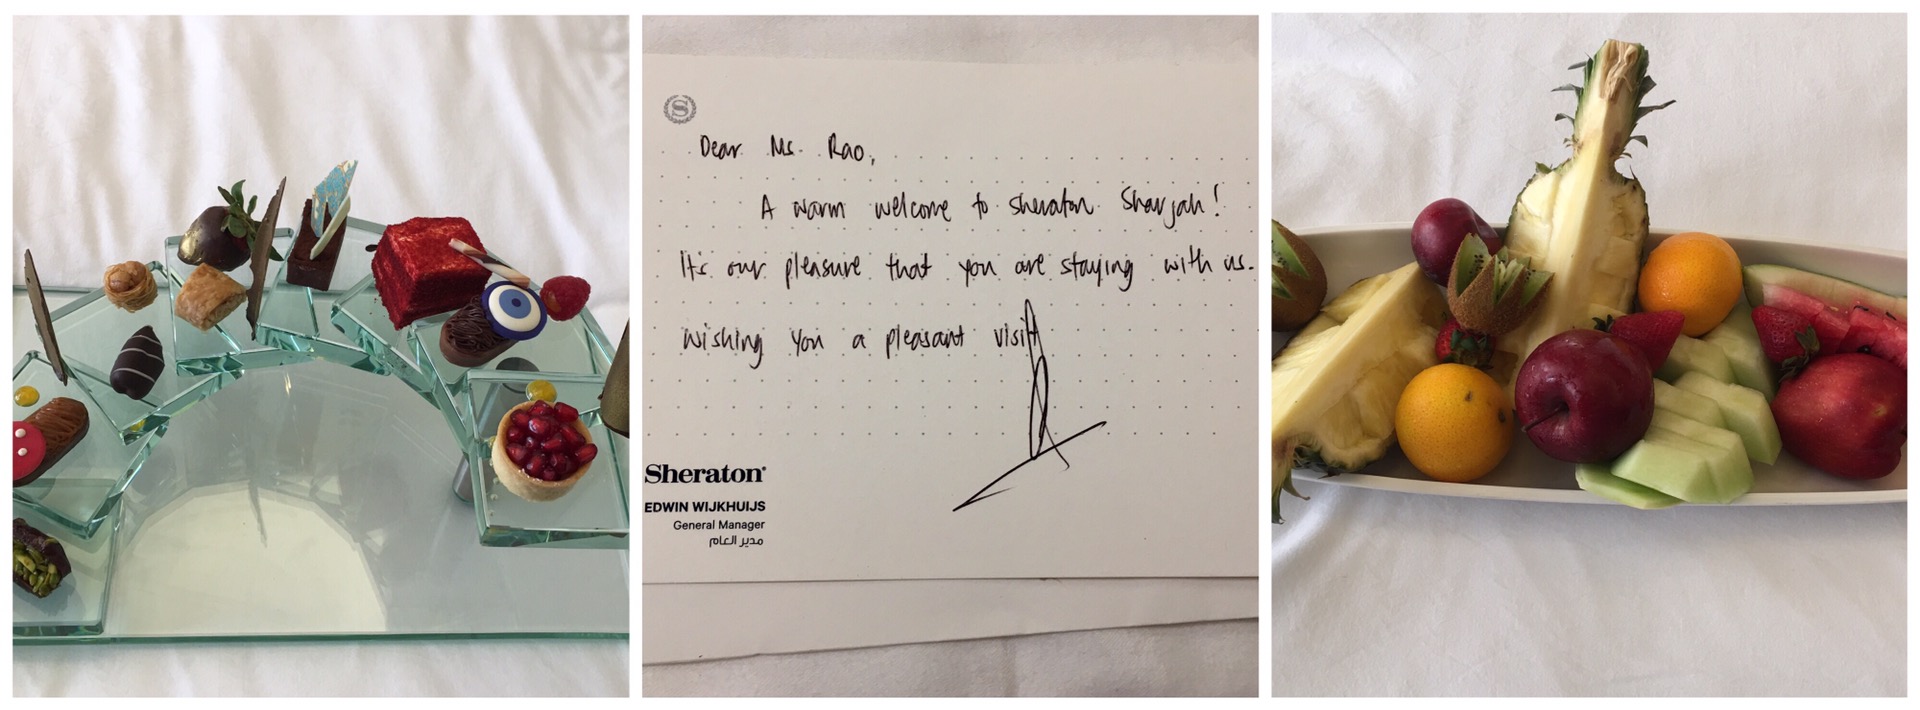 S
Dear Ms. Rao,
A warm welcome to sheraton Sharjah!
It's our pleasure that you are staying with us.
wishing you a pleasant visit
Sheraton
EDWIN WIJKHUIJS
General Manager
مدير العام